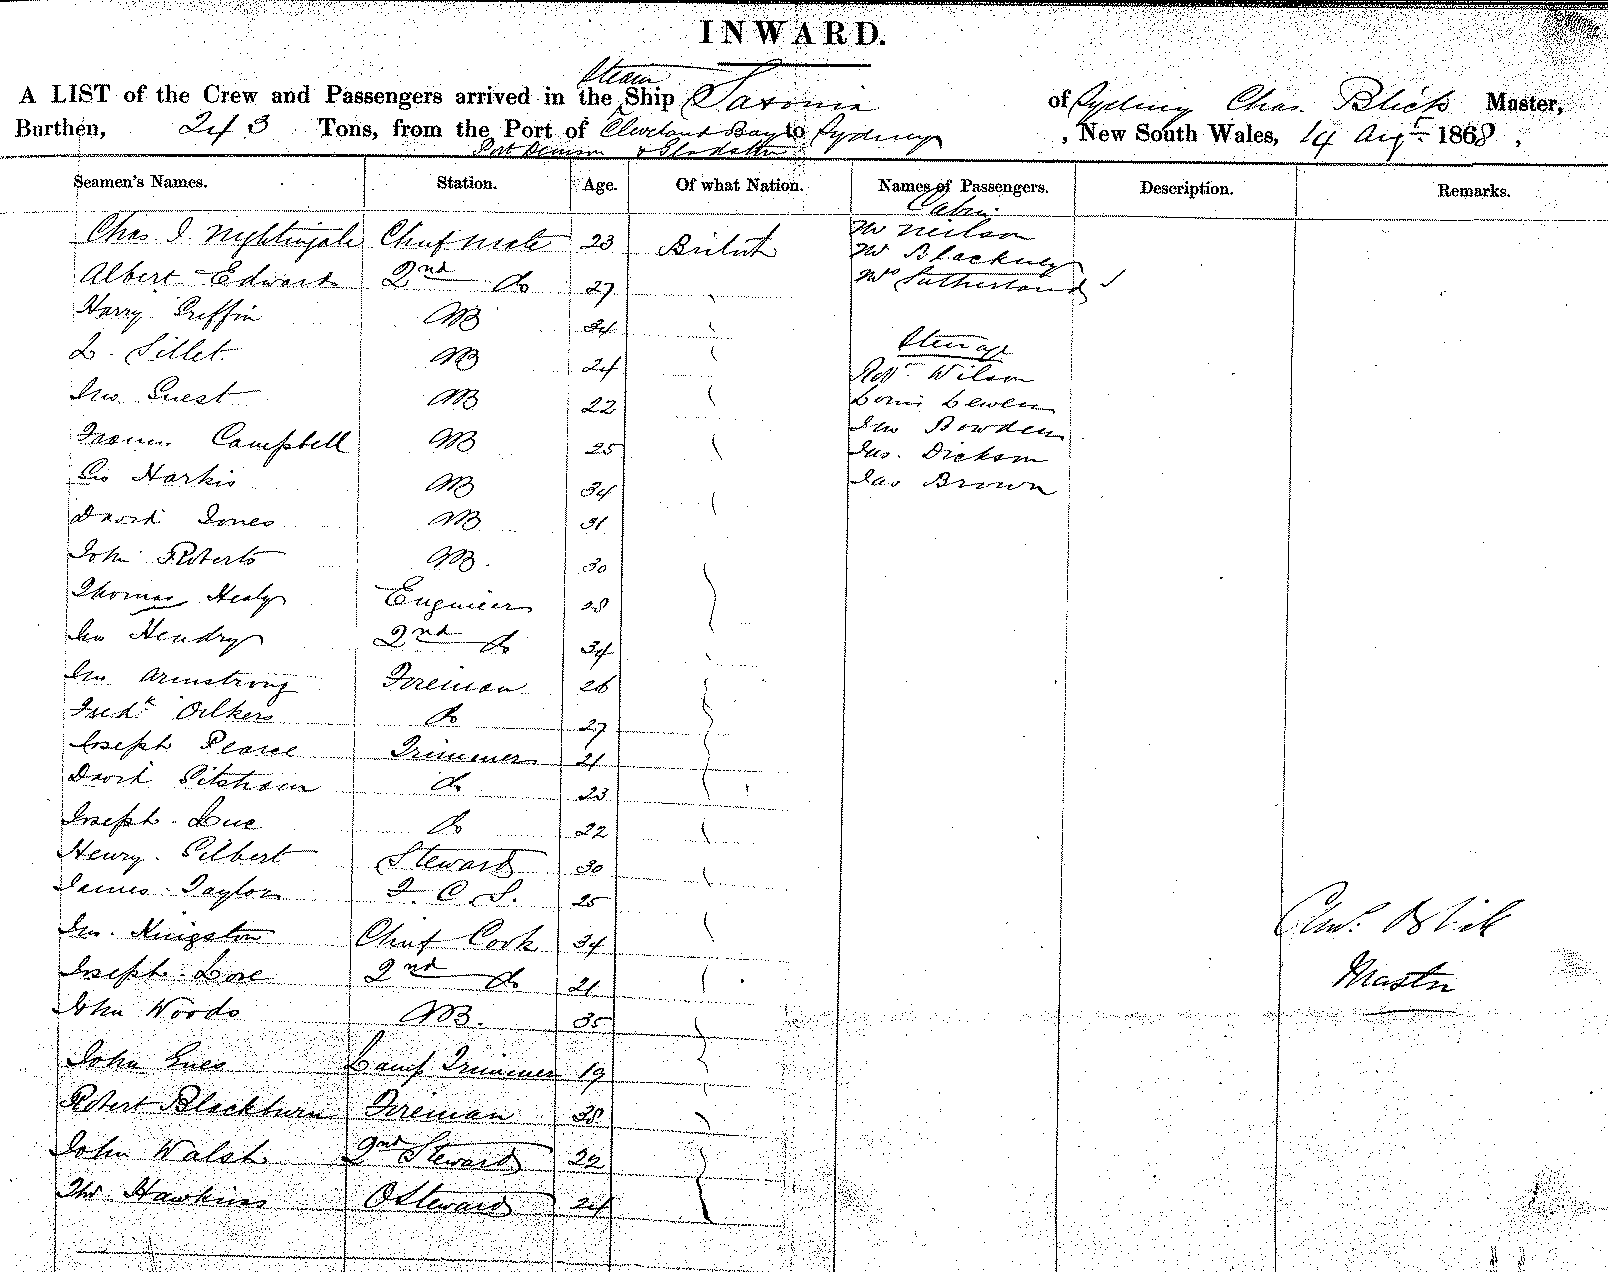 INWARD.
Steam
A LIST of the Crew and Passengers arrived in the Ship Saxonia of Sydney Chas. Blick Master,
Burthen, 243 Tons, from the Port of Cleveland Bay to Sydney, New South Wales, 14 Augt 1868.
Port Denison & Gladstone
Seamen's Names. Station. Age. Of what Nation. Names of Passengers. Description. Remarks.
Cabin
Chas J. Nightingale Chief Mate 23 British Mr Neilson
Mr Blackney
Albert Edwards 2nd do 27 Mrs Sutherland
Harry Griffin AB 24
Steerage
L. Sillet AB 24 Robt Wilson
Jno. Guest AB 22 Louis Lewen
Jno Bowden
Francis Campbell AB 25 Jas. Dickson
Geo Harkis AB 34 Jas Brown
David Jones AB 31
John Roberts AB. 30
Thomas Healy Engineer 28
Jno Hendry 2nd do 34
Jno Armstrong Fireman 26
Fredk Oilkers do 27
Joseph Pearce Trimmer 21
David Pitcham do 23
Joseph Luc do 22
Henry Gilbert Steward 30
James Taylor F. C. S. 25
Jno. Kingston Chief Cook 34
Chas. Blick
Joseph Lore 2nd do 21
Master
John Woods AB. 35
John Eves Lamp Trimmer 19
Robert Blackburn Fireman 38
John Walsh 2nd Steward 22
Thos. Hawkins Steward 24